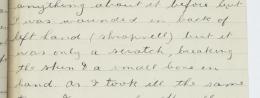 anything about it before but
I was wounded in back of
left hand (shrapnell) but it
was only a scratch, breaking
the skin & a small bone in
hand. As I took ill the same